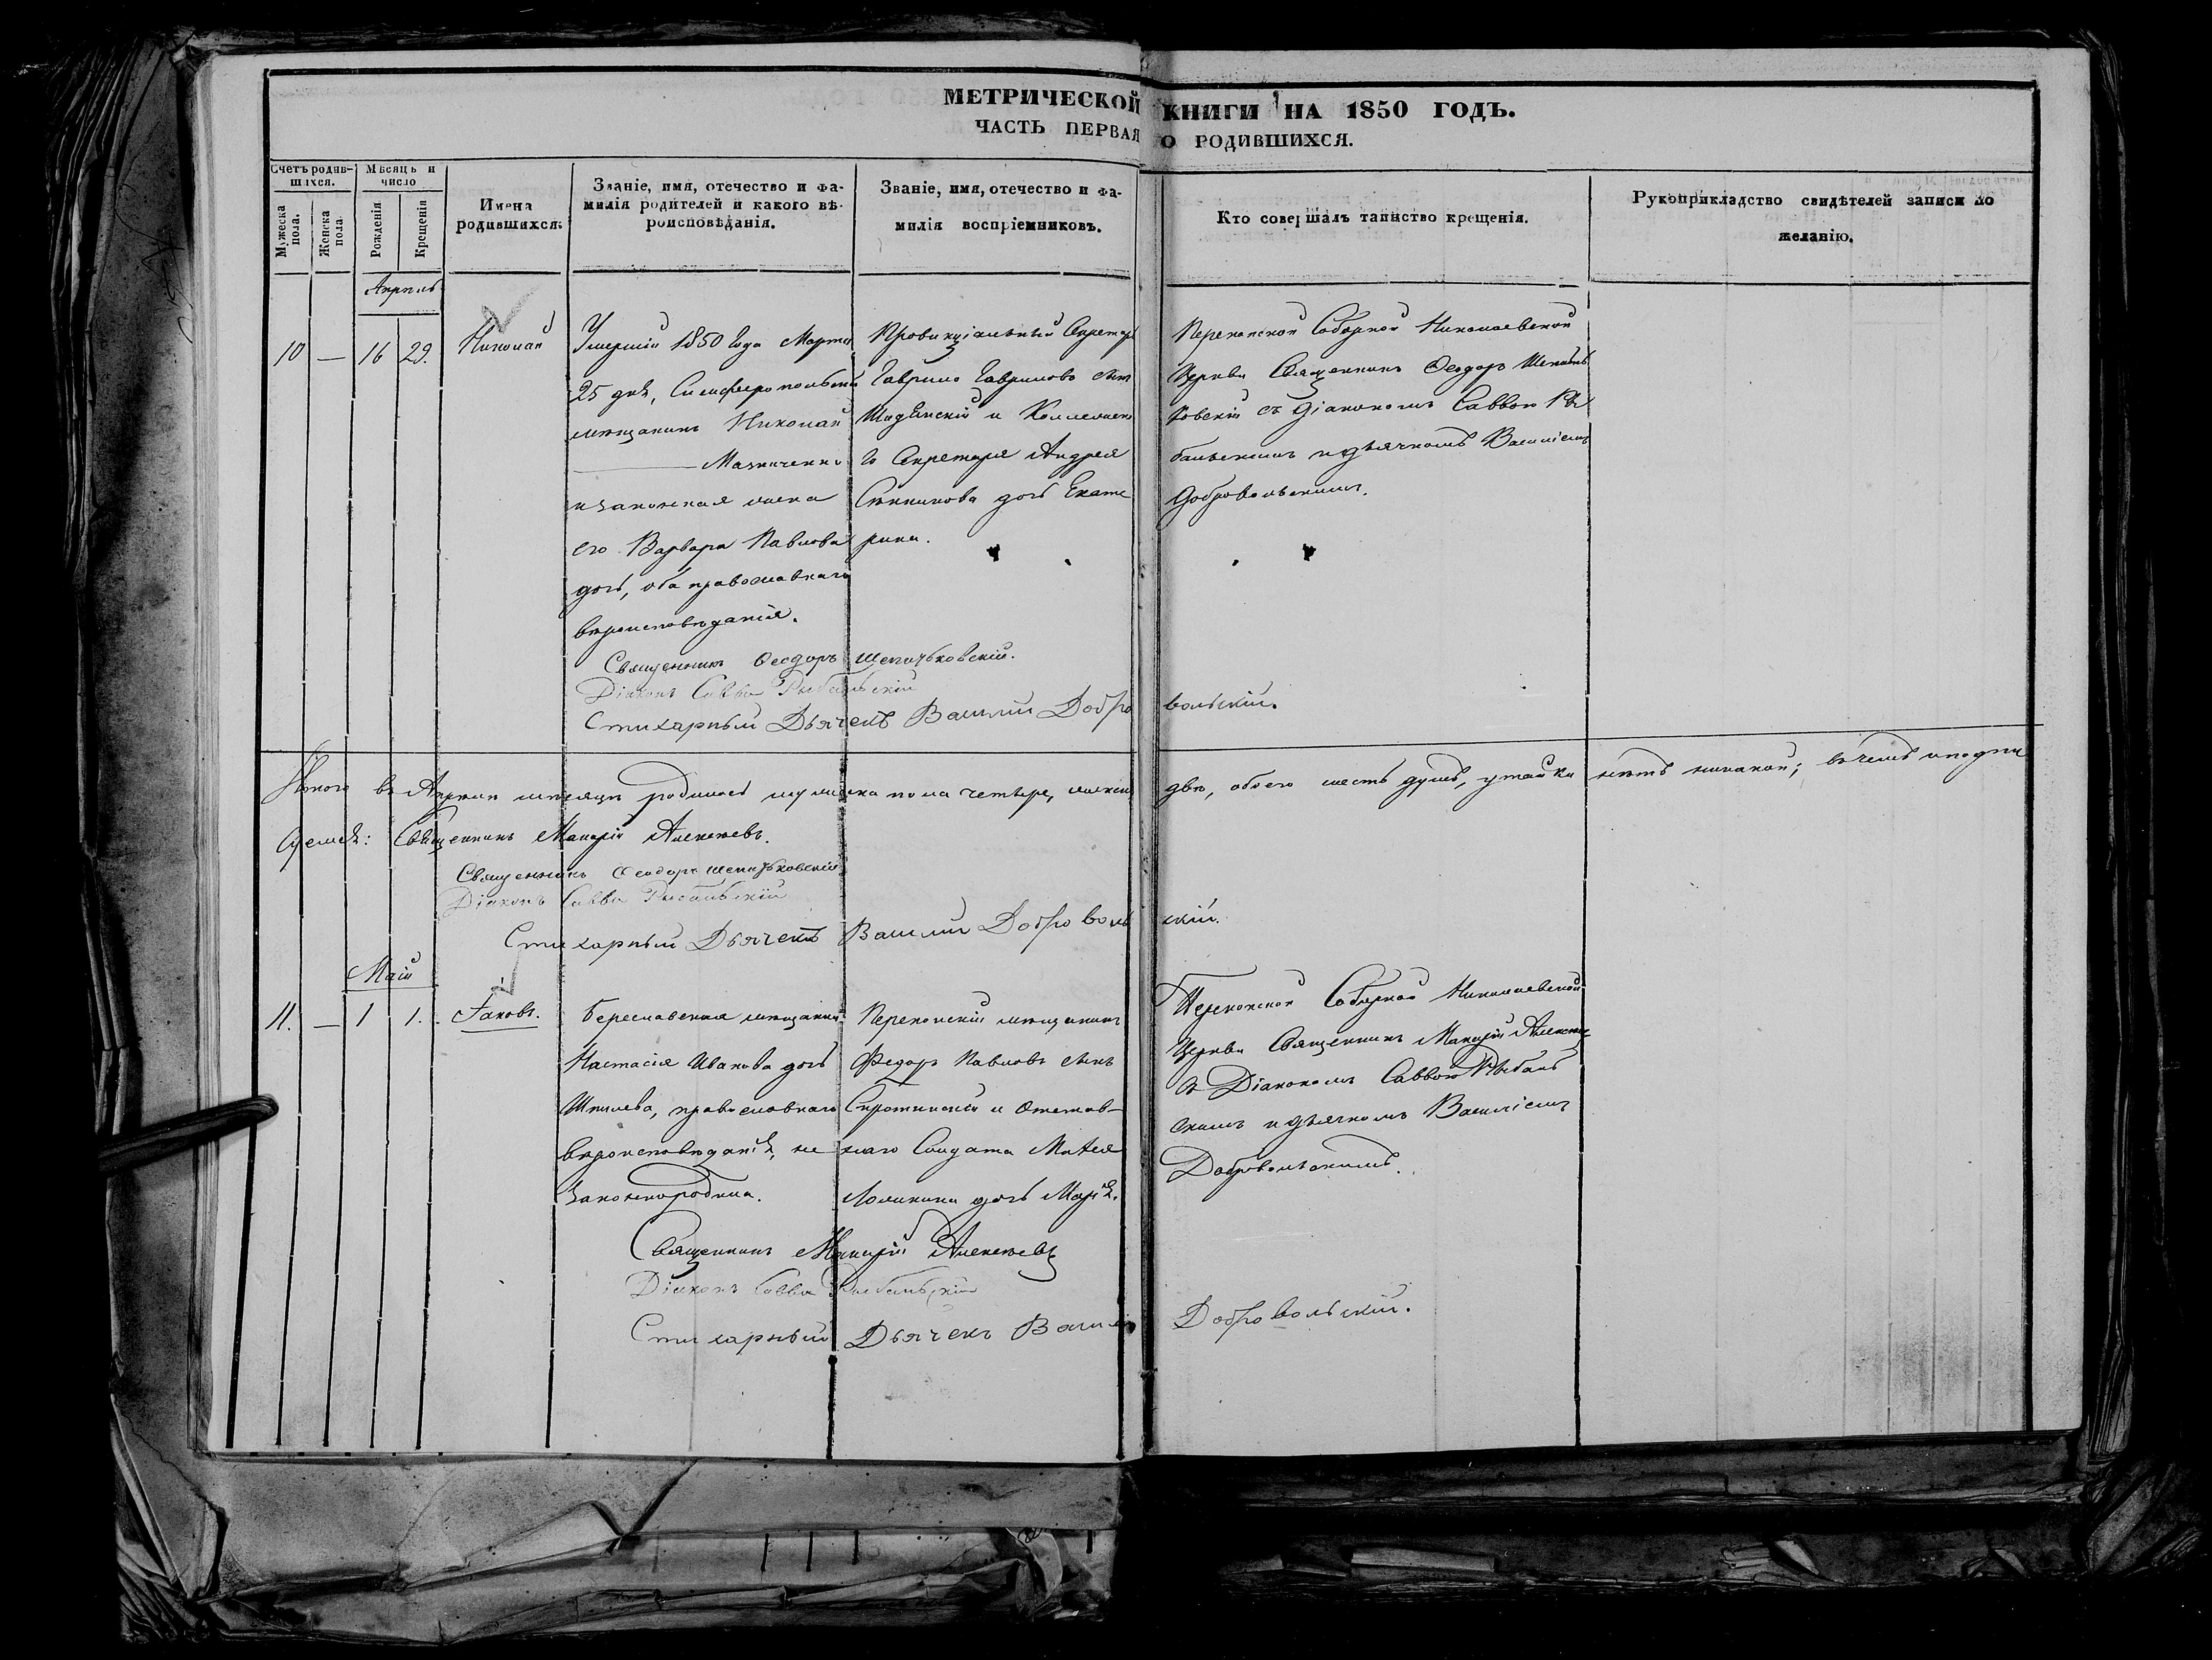 МЕТРИЧЕСКОЙ КНИГИ НА 1850 ГОДЪ.
ЧАСТЬ ПЕРВАЯ О РОДИВШИХСЯ.
Счетъ родив-
шихся.
Мужеска пола.
Женска пола.
Мѣсяцъ и
число
Рожденія
Крещенія
Имена
родившихся.
Званіе, имя, отечество и фа-
милія родителей и какого вѣ-
роисповѣданія.
Званіе, имя, отечество и фа-
милія воспріемниковъ.
Кто совершалъ таинство крещенія.
Рукоприкладство свидѣтелей записи по
желанію.
Апрель
10 — 16 29.
Николай
Умершій 1850 года Марта
25 дня, Симферопольскій
мѣщанинъ Николай
Мазниченко
и законная жена
его Варвара Павлова
дочь, оба православнаго
вѣроисповѣданія.
Провинціальный Секретарь
Гаврило Гавриловъ сынъ
и Коллежска
го Секретаря Андрея
дочь Екате
рина.
Перекопской Соборной Николаевской
Церкви Священникъ Ѳеодоръ Шепить
ковскій съ Діакономъ Саввою Ры
бальскимъ и дьячкомъ Василіемъ
Добровольскимъ.
Священникъ Ѳеодоръ Шепитьковскій.
Діаконъ Савва Рыбальскій
Стихарный Дьячекъ Василий Добровольскій.
Итого въ Апрелѣ мѣсяцѣ родилось мужеска пола четыре, женска двѣ, обоего шесть душъ, утайки нѣтъ никакой; въ чемъ и подпи
суемся: Священникъ Макарій Алексѣевъ.
Священникъ Ѳеодоръ Шепитьковскій
Діаконъ Савва Рыбальскій
Стихарный Дьячекъ Василий Добровольскій.
Маій
11. — 1 1.
Іаковъ.
Береславская мѣщанка
Настасія Иванова дочь
православнаго
вѣроисповѣданія, не
законнородна.
Перекопскій мѣщанинъ
Федоръ Павловъ сынъ
и Отстав-
наго Солдата
дочь Марія.
Перекопской Соборной Николаевской
Церкви Священникъ Макарій Алексѣевъ
съ Діакономъ Саввою Рыбаль
скимъ и дьячкомъ Василіемъ
Добровольскимъ.
Священникъ Макарій Алексѣевъ
Діаконъ Савва Рыбальскій
Стихарный Дьячекъ Василий Добровольскій.